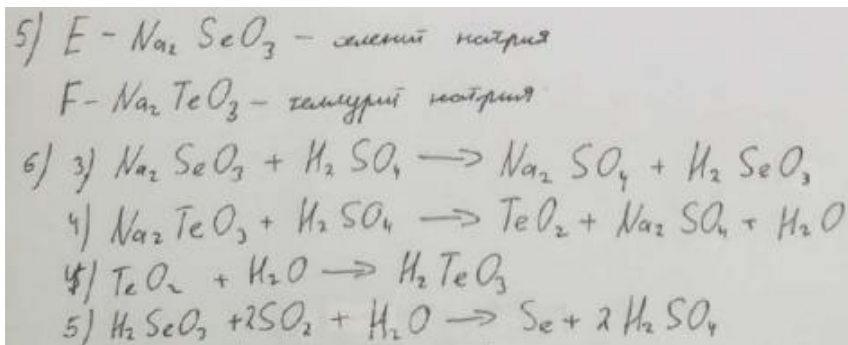 5) E - Na₂ SeO₃ - селенит натрия
F - Na₂ TeO₃ - теллурит натрия
6) 3) Na₂ SeO₃ + H₂ SO₄ ⟶ Na₂ SO₄ + H₂ SeO₃
4) Na₂ TeO₃ + H₂ SO₄ ⟶ TeO₂ + Na₂ SO₄ + H₂O
TeO₂ + H₂O ⟶ H₂ TeO₃
5) H₂ SeO₃ + 2SO₂ + H₂O ⟶ Se + 2 H₂ SO₄